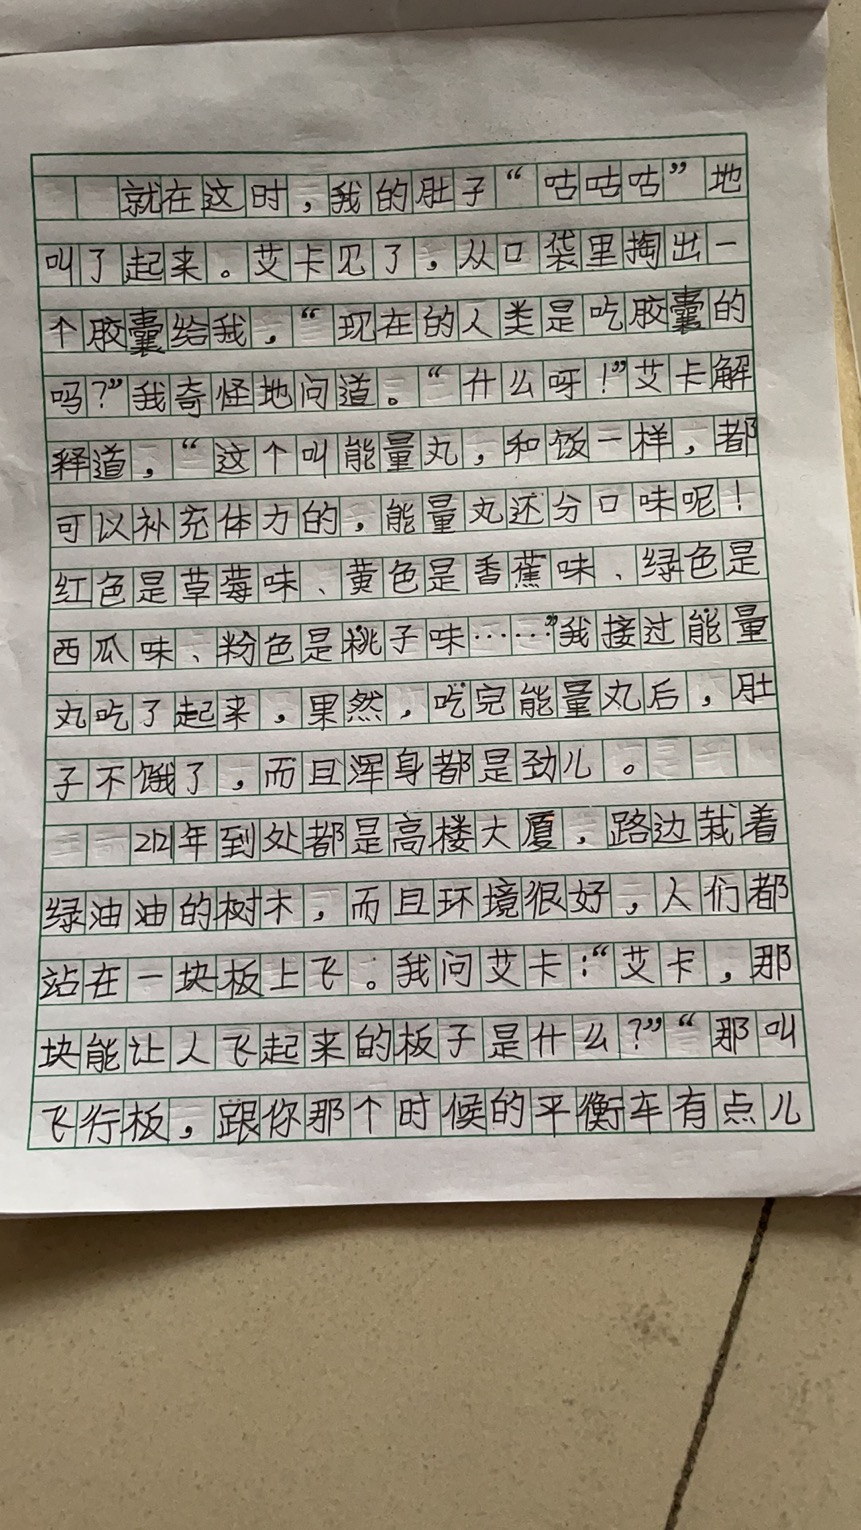 就在这时，我的肚子“咕咕咕”地
叫了起来。艾卡见了，从口袋里掏出一
个胶囊给我，“现在的人类是吃胶囊的
吗？”我奇怪地问道。“什么呀！”艾卡解
释道，“这个叫能量丸，和饭一样，都
可以补充体力的，能量丸还分口味呢！
红色是草莓味、黄色是香蕉味、绿色是
西瓜味、粉色是桃子味……”我接过能量
丸吃了起来，果然，吃完能量丸后，肚
子不饿了，而且浑身都是劲儿。
2121年到处都是高楼大厦，路边栽着
绿油油的树木，而且环境很好，人们都
站在一块板上飞。我问艾卡：“艾卡，那
块能让人飞起来的板子是什么？”“那叫
飞行板，跟你那个时候的平衡车有点儿